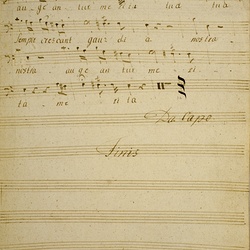 au- ge an tur me ri ta
Semper crescant gau- di a. nostra
nostra au ge an tur me ri
ta me ri ta
Da Capo
Finis